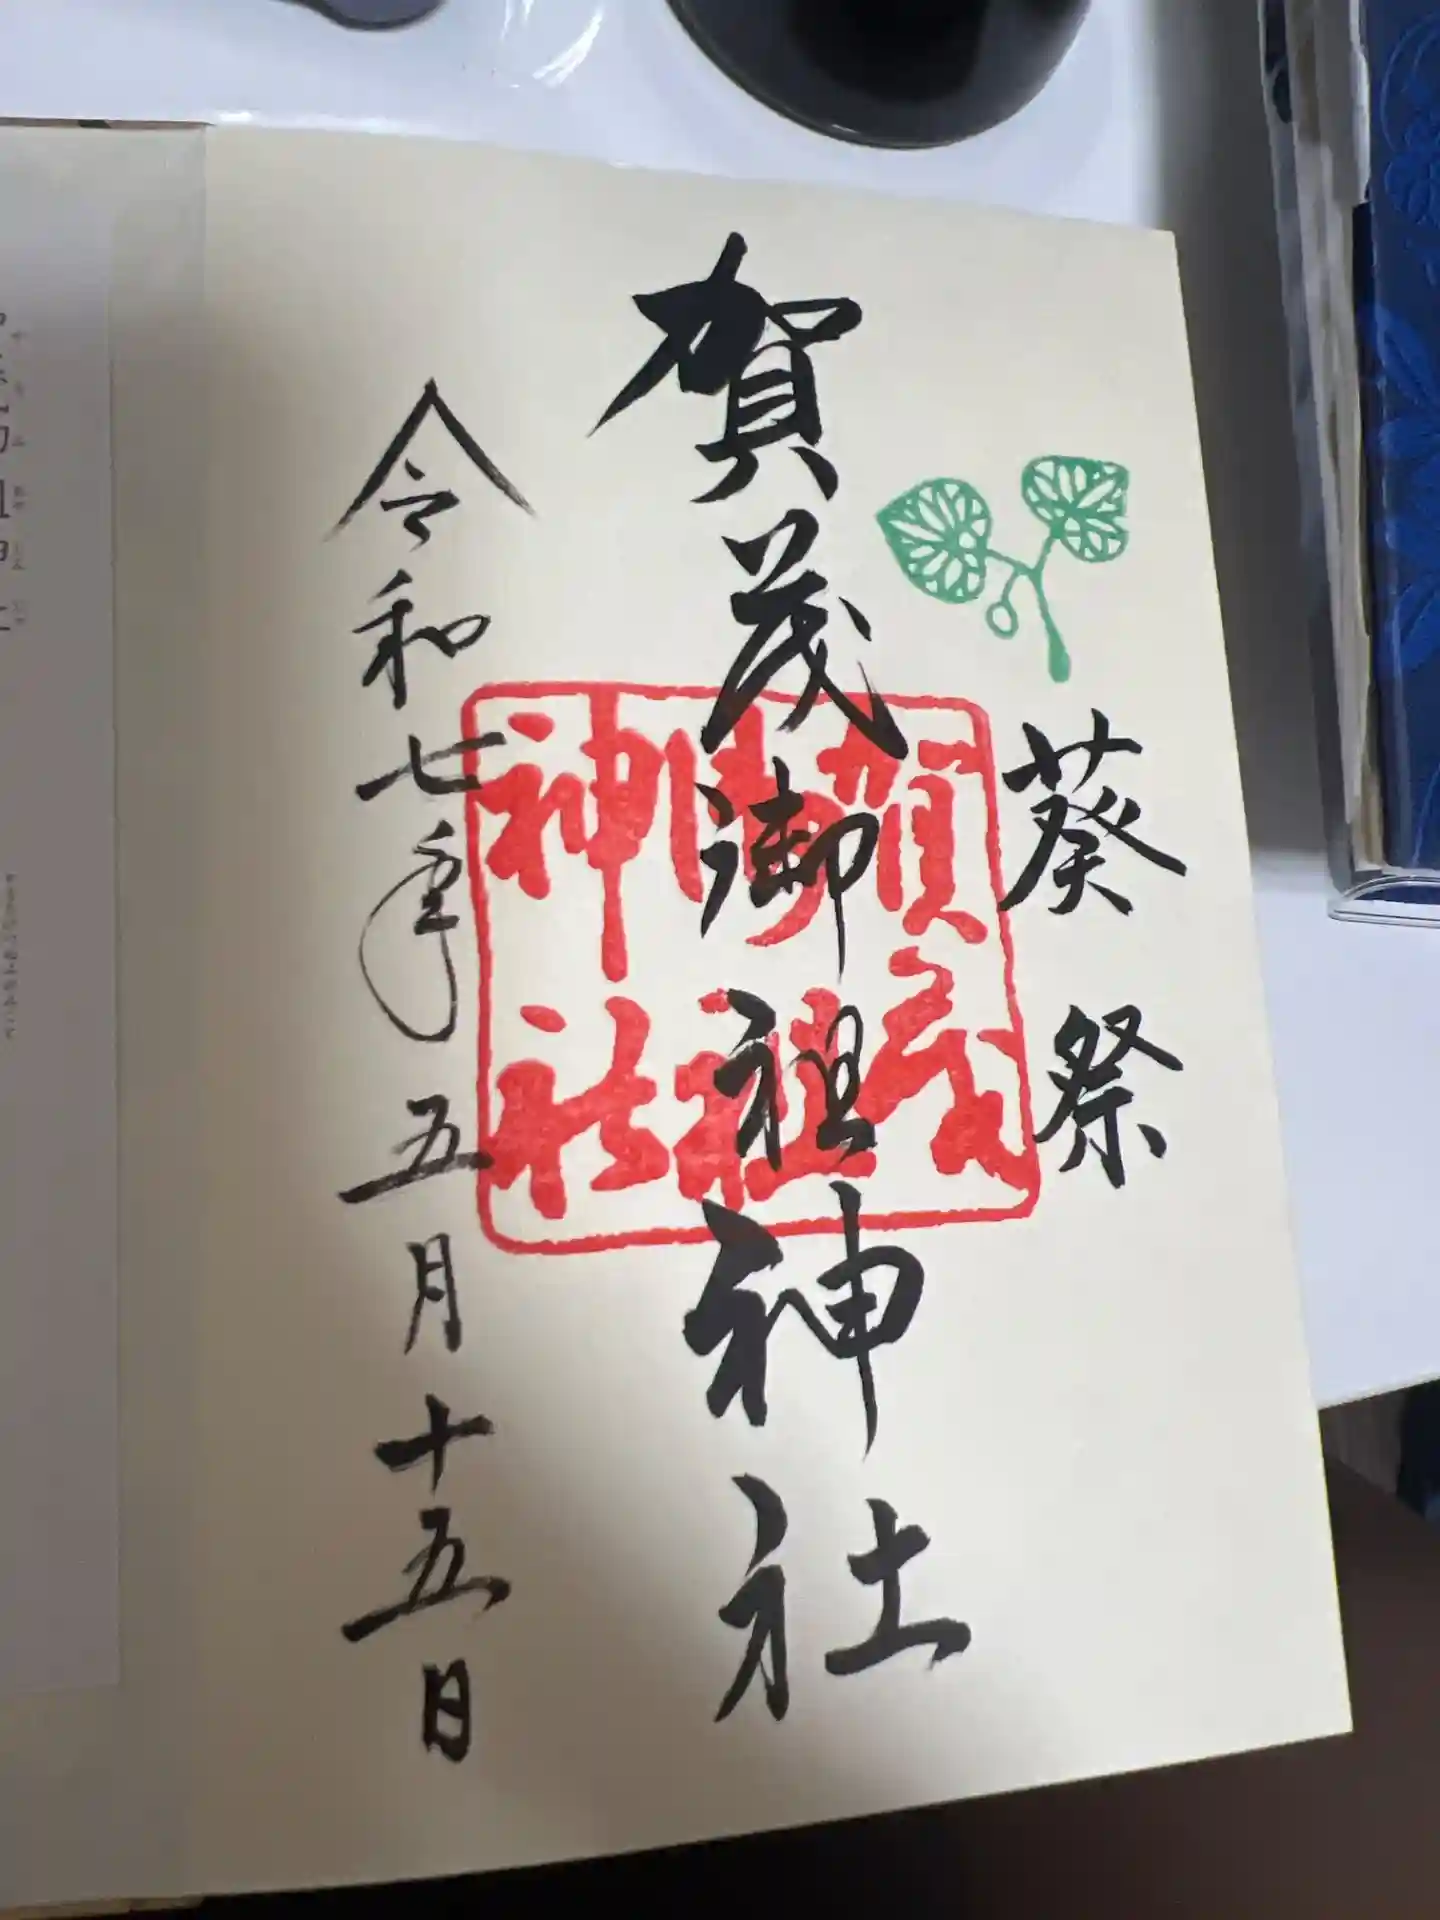 葵祭
賀茂御祖神社
賀茂
御祖
神社
令和七年五月十五日